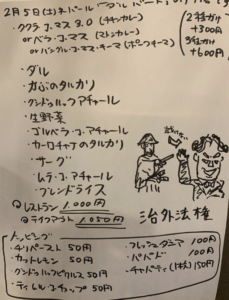 2月5日(土)ネパール「ダルバート」
・ククラ コ マス 3.0 (チキンカレー)
or バラ コ マス (マトンカレー)
or バングル コ マス キーマ (ポークキーマ)
2種がけ
+300円
3種がけ
+600円
・ダル
・かぶのタルカリ
・グンドゥルックアチャール
・生野菜
・ゴルベラ コ アチャール
・カーロチャナのタルカリ
・サーグ
・ムラ コ アチャール
・ブレンドライス
レストラン 1.000円
テイクアウト 1.050円
治外法権
トッピング
・チリペースト 50円
・カットレモン 50円
・グンドゥルックピクルス 50円
・ティムルコチョップ 50円
・フレッシュダニア 100円
・パパド 100円
・チャパティ(1枚) 150円